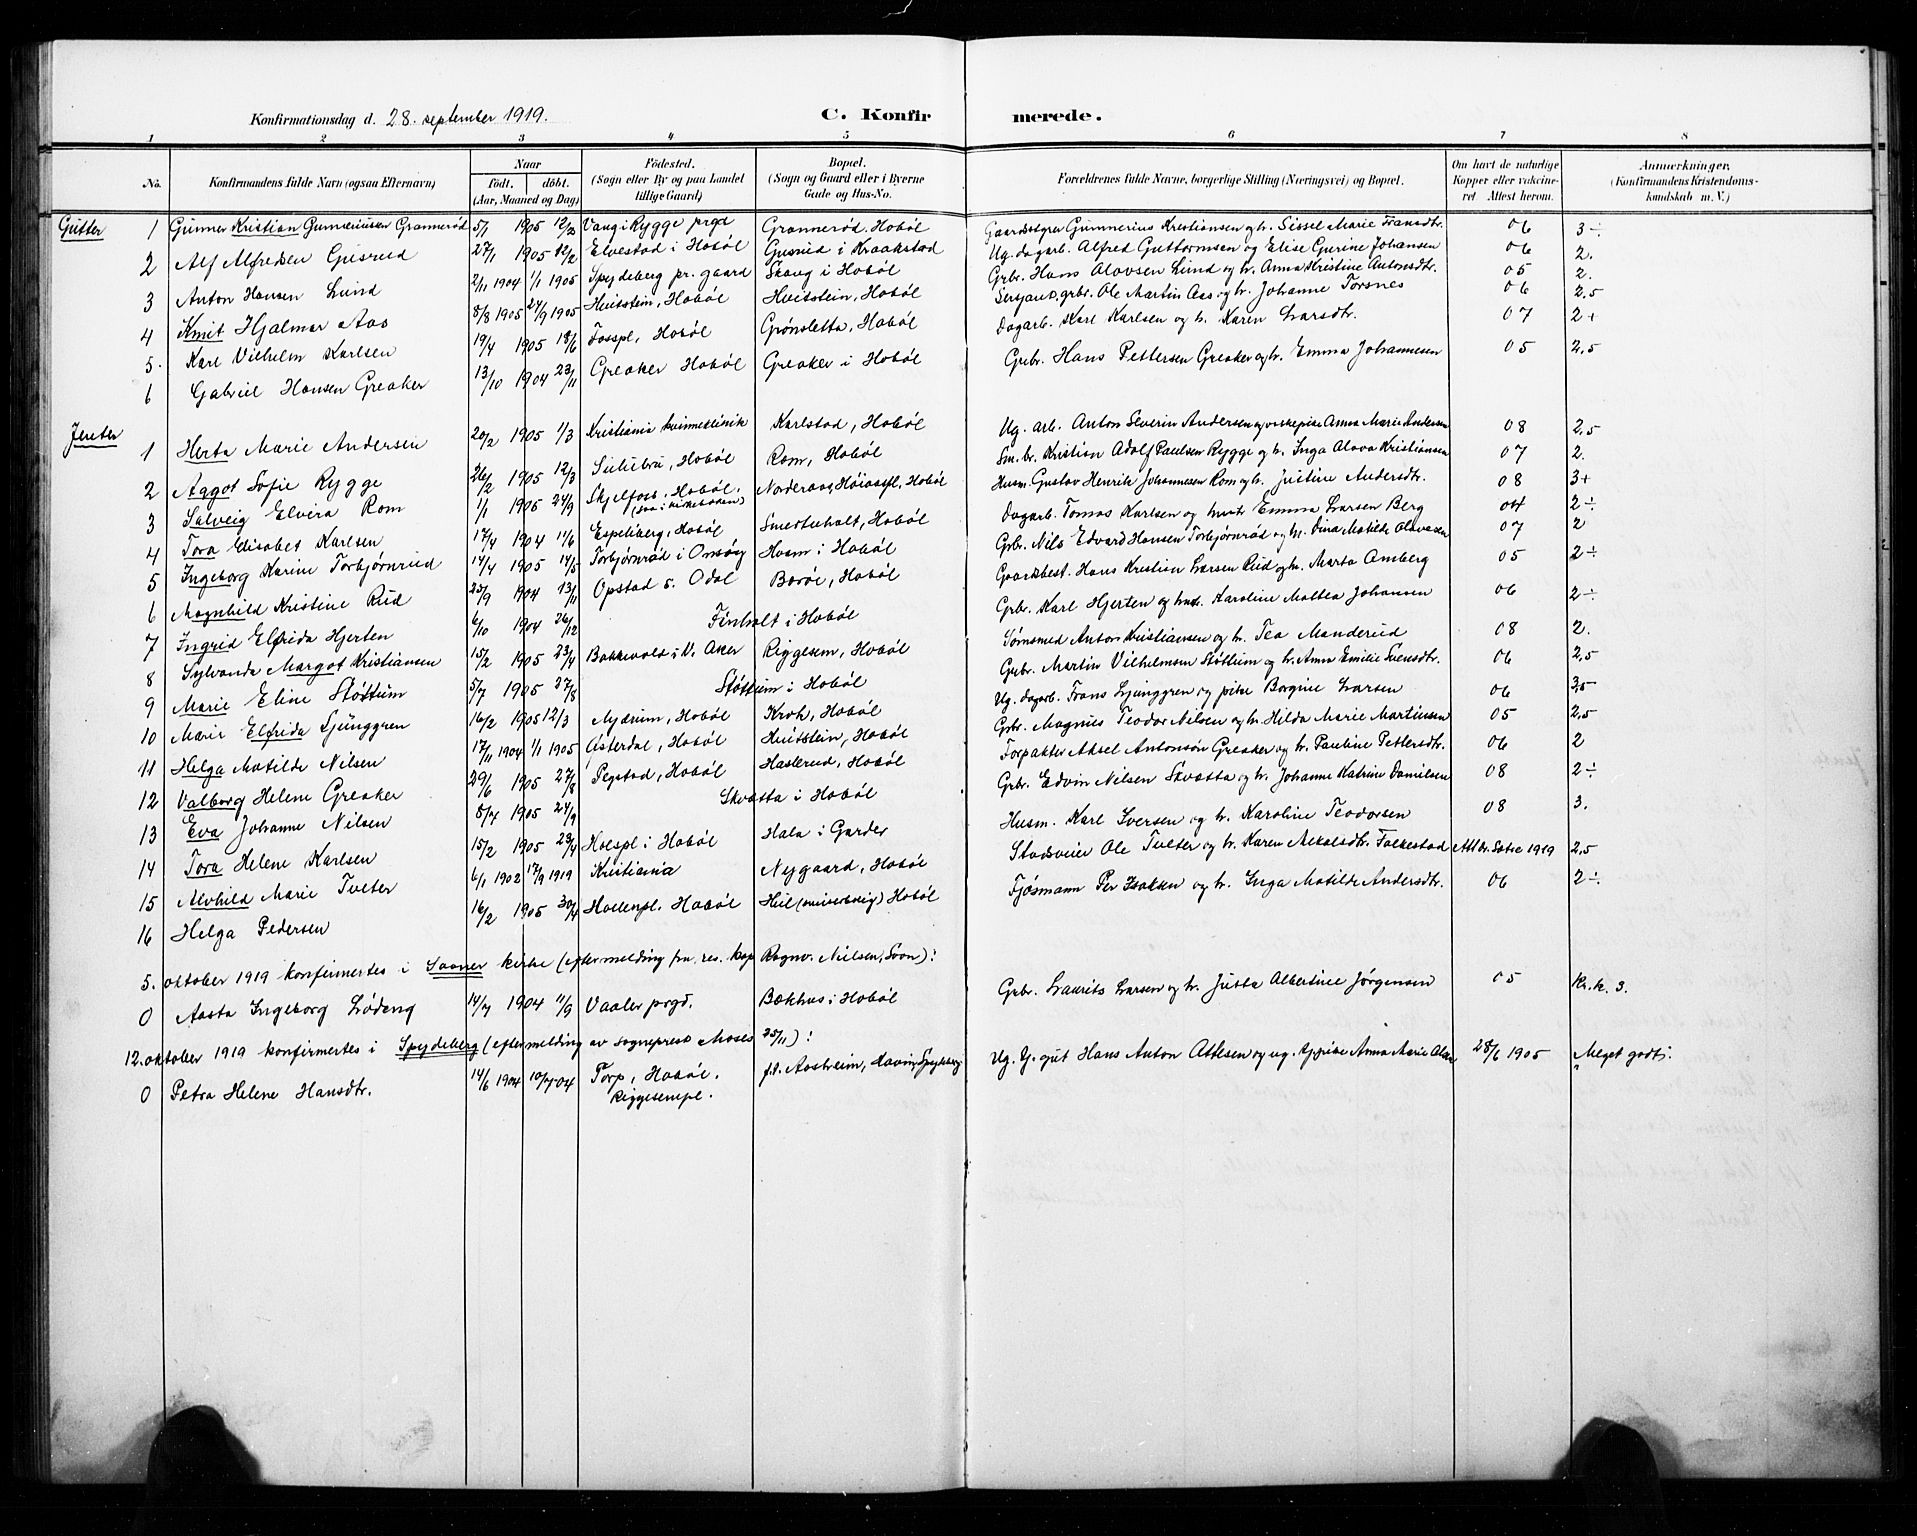 Konfirmationsdag d. 28. september 1919. C. Konfirmerede.
1 2 3 4 5 6 7 8
No. Konfirmandens fulde Navn (ogsaa Efternavn) Naar født. døbt. (Aar, Maaned og Dag) Födested. (Sogn eller By og paa Landet tillige Gaard) Bopæl. (Sogn og Gaard eller i Byerne Gade og Hus-No. Forældrenes fulde Navne, borgerlige Stilling (Næringsvei) og Bopæl. Om havt de naturlige Kopper eller vakcineret. Attest herom. Anmerkninger. (Konfirmandens Kristendomskundskab m. V.)
Gutter 1 Gunnar Kristian Gunneriusen Grannerød 5/1 1905 12/3 Vang i Rygge prgd Grannerød. Hobøl Gaardsstyrer Gunnerius Kristiansen og h. Sissel Marie Fransdtr. 06 3÷
2 Alf Alfredsen Gusrud 27/1 1905 12/2 Elvestad i Hobøl Gusrud i Kraakstad Ug. dagarb. Alfred Guttormsen og Elise Gurine Johansen 06 2.
3 Anton Hansen Lund 2/11 1904 1/1 1905 Spydeberg pr. gaard Skaug i Hobøl Grbr. Hans Olavsen Lund og h. Anna Kristine Antonsdtr. 05 2.
4 Knut Hjalmar Aas 8/8 1905 24/9 1905 Hvitstein, Hobøl Hvitstein, Hobøl Sersjant, grbr. Ole Martin Aas og h. Johanne Torsnes 06 2,5
5. Karl Vilhelm Karlsen 19/4 1905 18/6 Fosspl, Hobøl Grønsletta, Hobøl Dagarb. Karl Karlsen og h. Karen Larsdtr. 07 2+
6 Gabriel Hansen Greaker 13/10 1904 23/11 Greaker Hobøl Greaker i Hobøl Grbr. Hans Pettersen Greaker og h. Emma Johannesen 05 2,5
Jenter 1 Herta Marie Andersen 20/2 1905 1/3 Kristiania kvinneklinik Karlstad, Hobøl Ug. arb. Anton Severin Andersen og Anna Marie Andersen 08 2,5
2 Aagot Sofie Rygge 26/2 1905 12/3 Hobøl Rom, Hobøl Sm. br. Kristian Adolf Paulsen Rygge og h. Inga Olava Kristiansen 07 2.
3 Salveig Elvira Rom 1/1 1905 24/9 Skjelfoss. Hobøl. (saa i kirkeboken) Hobøl Husm. Gustav Henrik Johannesen Rom og h. Justine Andersdtr. 08 3+
4 Tora Elisabet Karlsen 17/4 1904 11/6 Espeliberg, Hobøl Smertuholt, Hobøl Dagarb. Tomas Karlsen og Emma Larsen Berg 04 2÷
5 Ingeborg Karine Torbjørnrud 14/4 1905 14/5 Torbjørnrød i Onsøy Husm i Hobøl Grbr. Nils Edvard Hansen Torbjørnrød og h. Dina Matilde Olavesen 07 2
6 Magnhild Kristine Rud 25/9 1904 13/11 Opstad s. Odal Borøe, Hobøl Gaardsbest. Hans Kristian Larsen Rud og h. Marta Amberg 05 2÷
7 Ingrid Elfrida Hjerten 6/10 1904 26/12 Finholt i Hobøl Grbr. Karl Hjerten og Karoline Mattea Johansen 06 2÷
8 Sylvanda Margot Kristiansen 15/2 1905 23/4 Bakkevold i V. Aker Riggesem, Hobøl Anton Kristiansen og h. Tea Manderud 08 2.
9 Marie Eline Støttum 5/7 1905 27/8 Støttum i Hobøl Grbr. Martin Vilhelmsen Støttum og h. Anna Emilie Svensdtr. 06 2,5
10 Marie Elfrida Ljunggren 16/2 1905 12/3 Mjærum, Hobøl Kroh, Hobøl Ug. dagarb. Frans Ljunggren og pike Borgine Larsen 06 3,5
11 Helga Matilde Nilsen 17/11 1904 1/1 1905 Asterdal, Hobøl Hvitstein, Hobøl Grbr. Magnus Teodor Nilsen og h. Hilda Marie Martinsen 05 2,5
12 Valborg Helene Greaker 29/6 1905 27/8 Pegstad, Hobøl Haslerud, Hobøl Forpakter Aksel Antonsøn Greaker og h. Pauline Pettersdtr. 06 2
13 Eva Johanne Nilsen 8/7 1905 24/9 Skvatta i Hobøl Grbr. Edvin Nilsen Skvatta og h. Johanne Katrine Danielsen 08 2÷
14 Tora Helene Karlsen 15/2 1905 23/4 Holspl i Hobøl Hala i Garder Husm. Karl Iversen og h. Karoline Teodorsen 08 3.
15 Alvhild Marie Tveter 6/1 1902 17/9 1919 Kristiania Nygaard, Hobøl Stadsveier Ole Tveter og h. Karen Mekelsdtr. Falkestad 1919 2,5
16 Helga Pedersen 16/2 1905 30/4 Hollenpl. Hobøl Hobøl Fjøsmann Per Isaksen og h. Inga Matilde Andersdtr. 06 2÷
5. oktober 1919 konfirmertes i Saaner kirke (efter melding fra res. kap Ragnv. Nilsen, Soon):
0 Aasta Ingeborg Lødeng 14/7 1904 11/9 Vaaler prgd. Bækhus i Hobøl Grbr. Laurits Larsen og h. Justa Albertine Jørgensen 05 Kr.k. 3.
12. oktober 1919 konfirmertes i Spydeberg (efter melding av sogneprest Moses 25/11):
0 Petra Helene Hansdtr. 14/6 1904 10/7 04 Torp, Hobøl. Riggesempl. f.t. Aasheim, Spydeberg Ug. g. gut Hans Anton Attesen og ug. Anna Marie 28/6 1905 Meget godt.